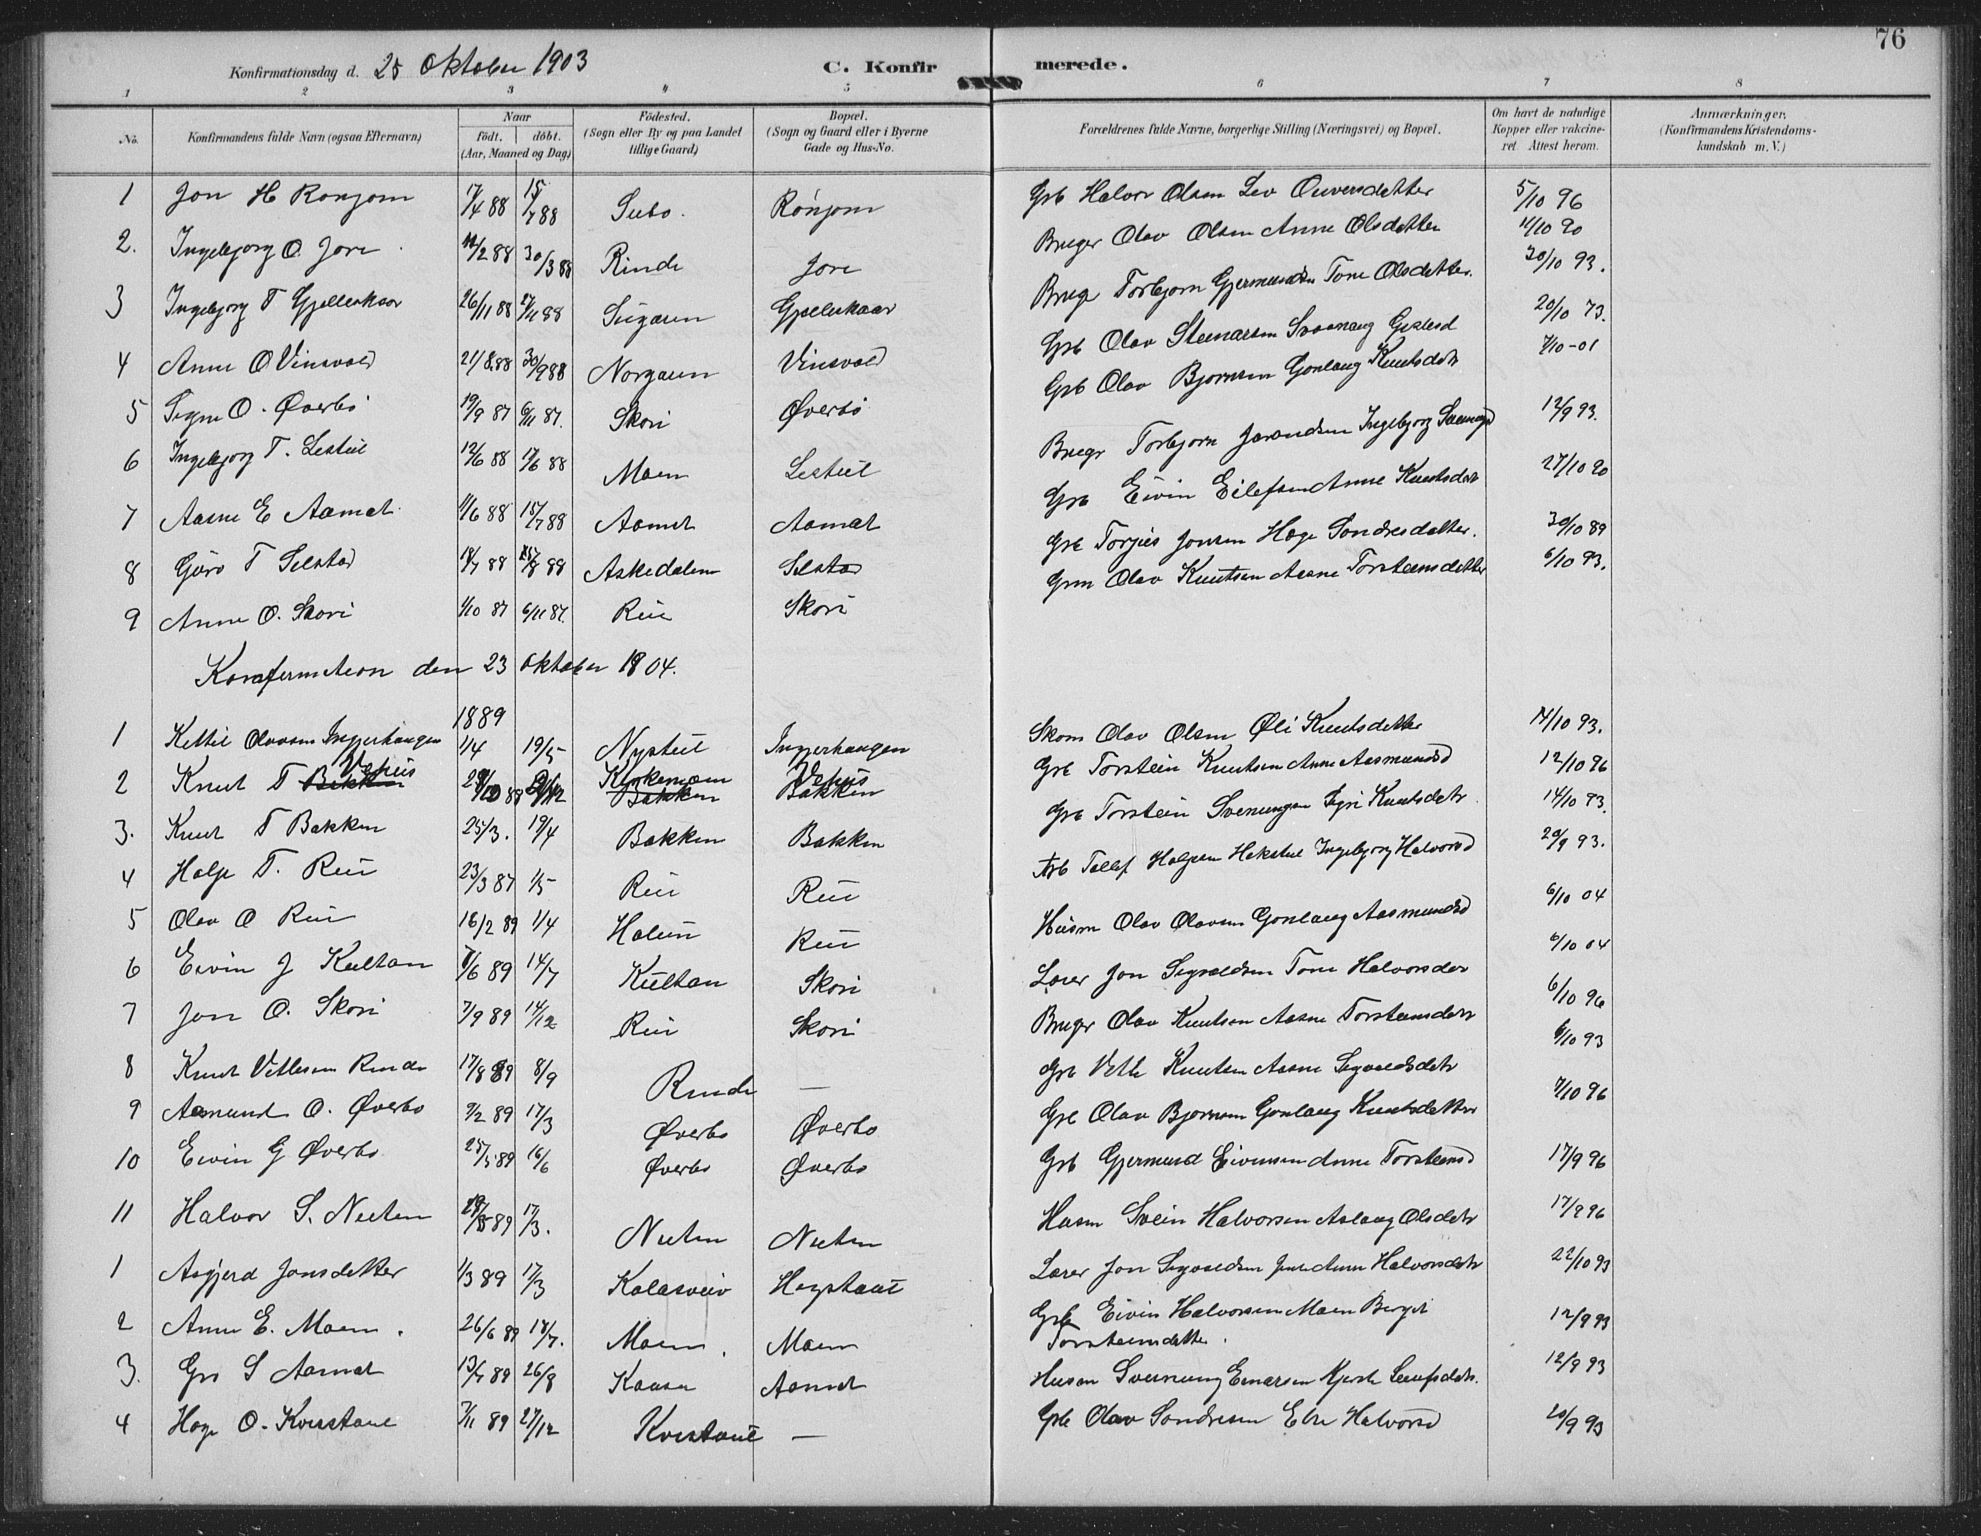 76
Konfirmationsdag d. 25 Oktober 1903 C. Konfir merede.
1 2 3 4 5 6 7 8
No. Konfirmandens fulde Navn (ogsaa Efternavn) Naar födt. döbt. (Aar, Maaned og Dag) Födested. (Sogn eller By og paa Landet tillige Gaard) Bopæl. (Sogn og Gaard eller i Byerne Gade og Hus-No. Forældrenes fulde Navne, borgerlige Stilling (Næringsvei) og Bopæl. Om havt de naturlige Kopper eller vakcineret Attest herom. Anmærkninger. (Konfirmandens Kristendomskundskab m. V.)
1 Jon H Ronjom 17/4 88 15/7 88 Ronjom Grb Halvor Olsen 5/10 96
2. Ingebjorg O. Jore 11/2 88 30/3 88 Rinde Jore Bruger Olav Olsen Anne Olsdatter 11/10 90
3 Ingebjorg T Gjellerkaas 26/11 88 Gjellerkaas Bruger Torbjorn Gjermundsen Tone Olsdatter. 30/10 93.
4 Anne O Vinsvald 21/8 88 30/9 88 Norgaren Vinsvald Grb Olav Steinarsen 20/10 73.
5 Signe O. Øverbø 19/9 87 6/11 87. Skori Øverbø Grb Olav Bjornsen Gonlaug Knutsdatr 7/10-01
6 Ingebjorg T. Lestul 12/6 88 17/6 88 Moen Lestuil Brugr Torbjorn Ingebjorg 12/9 93.
7 Aasne E Aamot 1/6 88 15/7 88 Aamot Aamot Grb Eivin Eilefsen Anne Knutsdatr 27/10 90
8 Göro T Selstad 18/7 88 Askedalen Selstad Grb Torjus Jonsen Hæge Sondresdatter. 30/10 89
9 Anne O. Skori 1/10 87 6/11 87. Rui Skori Grm Olav Knutsen Aasne Torsteinsdatter 6/10 93.
Konfirmation den 23 Oktober 1804.
1889
1 Kettil Olavsen Ingjerhaugen 1/4 19/5 Nystuil Ingjerhaugen Olav Olsen Øli Knutsdatter 14/10 93.
2 Knut T Bakken Vehus Klokemoen Bakken Vehus Bakken Grb Torstein Knutsen Anne Aasmundsd 12/10 96
3. Knut T Bakken 25/3. 19/4 Bakken Bakken Grb Torstein Svenungsen Sigri Knutsdatr 14/10 93.
4 Holje T. Rui 23/3 87 1/5 Rui Rui Tallef Holjesen Ingebjorg Halvorsd 20/9 93.
5 Olav O Rui 16/2 89 1/4 Rui Husm Olav Olavsen Gonlaug Aasmundsd 6/10 04
6 Eivin J Kultan 7/6 89 14/7 Kultan Skori Lærer Jon Sigvaldsen Tone Halvorsdatr 6/10 04
7 Jon O. Skori 7/9 89 14/12 Rui Skori Bruger Olav Knutsen Aasne Torsteinsdatr 6/10 96
8 Knut Vetlesen Rinde 17/8 89 8/9 Rinde — Grb Vetle Knutsen Aasne Sigvaldsdatr 6/10 93
9 Aamund O. Øverbo 9/2 89 17/3 Øverbo Øverbo Grb Olav Bjornsen Gonlaug Knutsdatter 7/10 96
10 Eivin G Øverbo 25/5 89 16/6 Øverbo Øverbo Grb Gjermund Eivinsen Anne Torsteinsd 17/9 96
11 Halvor S. Nuten 89 17/3. Nuten Nuten Husm Svein Halvorsen Aslaug Olsdatr 17/9 96
1 Asgjerd Jonsdatter 1/3 89 17/3 Kolasveiv Lærer Jon Sigvaldsen Anne Halvorsdatr 22/10 93
2 Anne E. Moen. 26/6 89 18/7. Moen. Moen Grb Eivin Halvorsen Moen Bergit Torsteinsdatter. 12/9 93
3. Gro S Aamot 13/7 89 26/8 Kaasa Aamot Husm Svenung Einarsen 12/9 93
4 Hæge O. Kvistaul 7/11 89 27/12 Kvistaul — Grb Olav Sondresen Halvorsd 20/9 93